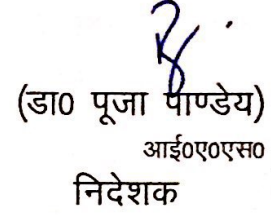 (डा0 पूजा पाण्डेय)
आई0ए0एस0
निदेशक